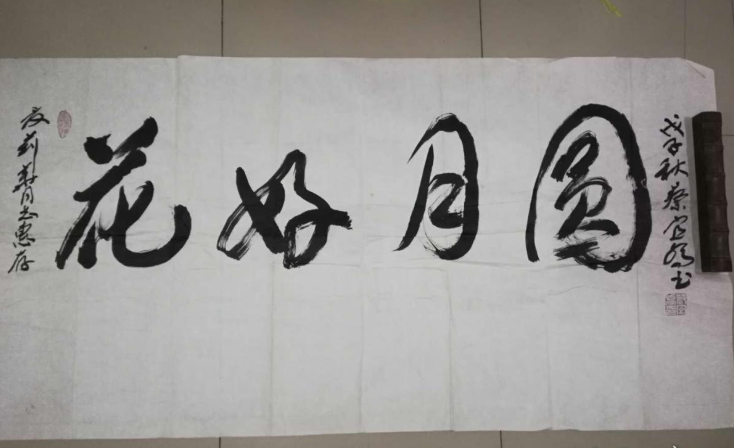 花好月圆
戊子秋蔡
同志惠存